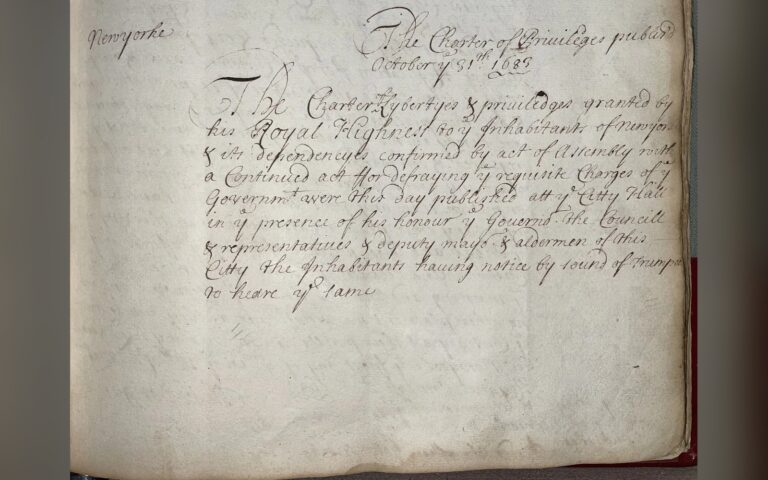 Newyorke
The Charter of Priviledges publisd
October ye 31th 1683
The Charter of Lybertyes & priviledges granted by
his Royal Highness to ye Inhabitants of Newyor
& its dependencyes confirmed by act of Assembly with
a Continued act ffor defraying ye requisite Charges of ye
Governmt were this day published att ye Citty Hall
in ye presence of his honour ye Governor the Councill
& representatives & deputy mayor & aldermen of this
Citty the Inhabitants having notice by sound of Trumpe
to heare ye same